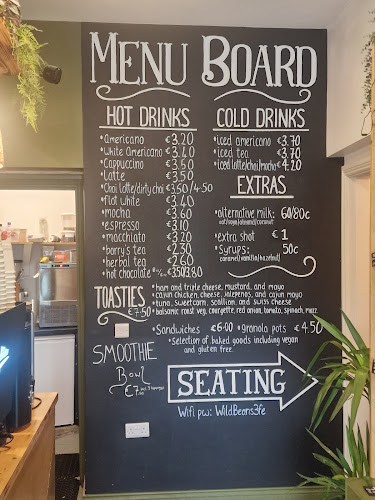 MENU BOARD
HOT DRINKS
•americano €3.20
•white americano €3.40
•Cappuccino €3.60
•Latte €3.50
•Chai latte/dirty chai €3.50/4.50
•flat white €3.40
•mocha €3.60
•espresso €3.10
•macchiato €3.20
•barry's tea €2.30
•herbal tea €2.60
•hot chocolate €3.50/3.80
COLD DRINKS
•iced americano €3.70
•iced tea €3.70
•iced latte/chai/mocha €4.20
EXTRAS
•alternative milk: 60/80c
oat/soya/almond/coconut
•extra shot €1
•Syrups: 50c
caramel/vanilla/hazelnut/
TOASTIES €7.50
•ham and triple cheese, mustard, and mayo
•cajun chicken, cheese, jalepenos, and cajun mayo
•tuna, sweetcorn, scallion, and swiss cheese
•balsamic roast veg, courgette, red onion, tomato, spinach, mozz.
•Sandwiches €6.00 •granola pots €4.50
•Selection of baked goods including vegan
and gluten free.
SMOOTHIE
Bowl
€7.00
SEATING
Wifi pw: WildBeans3fe